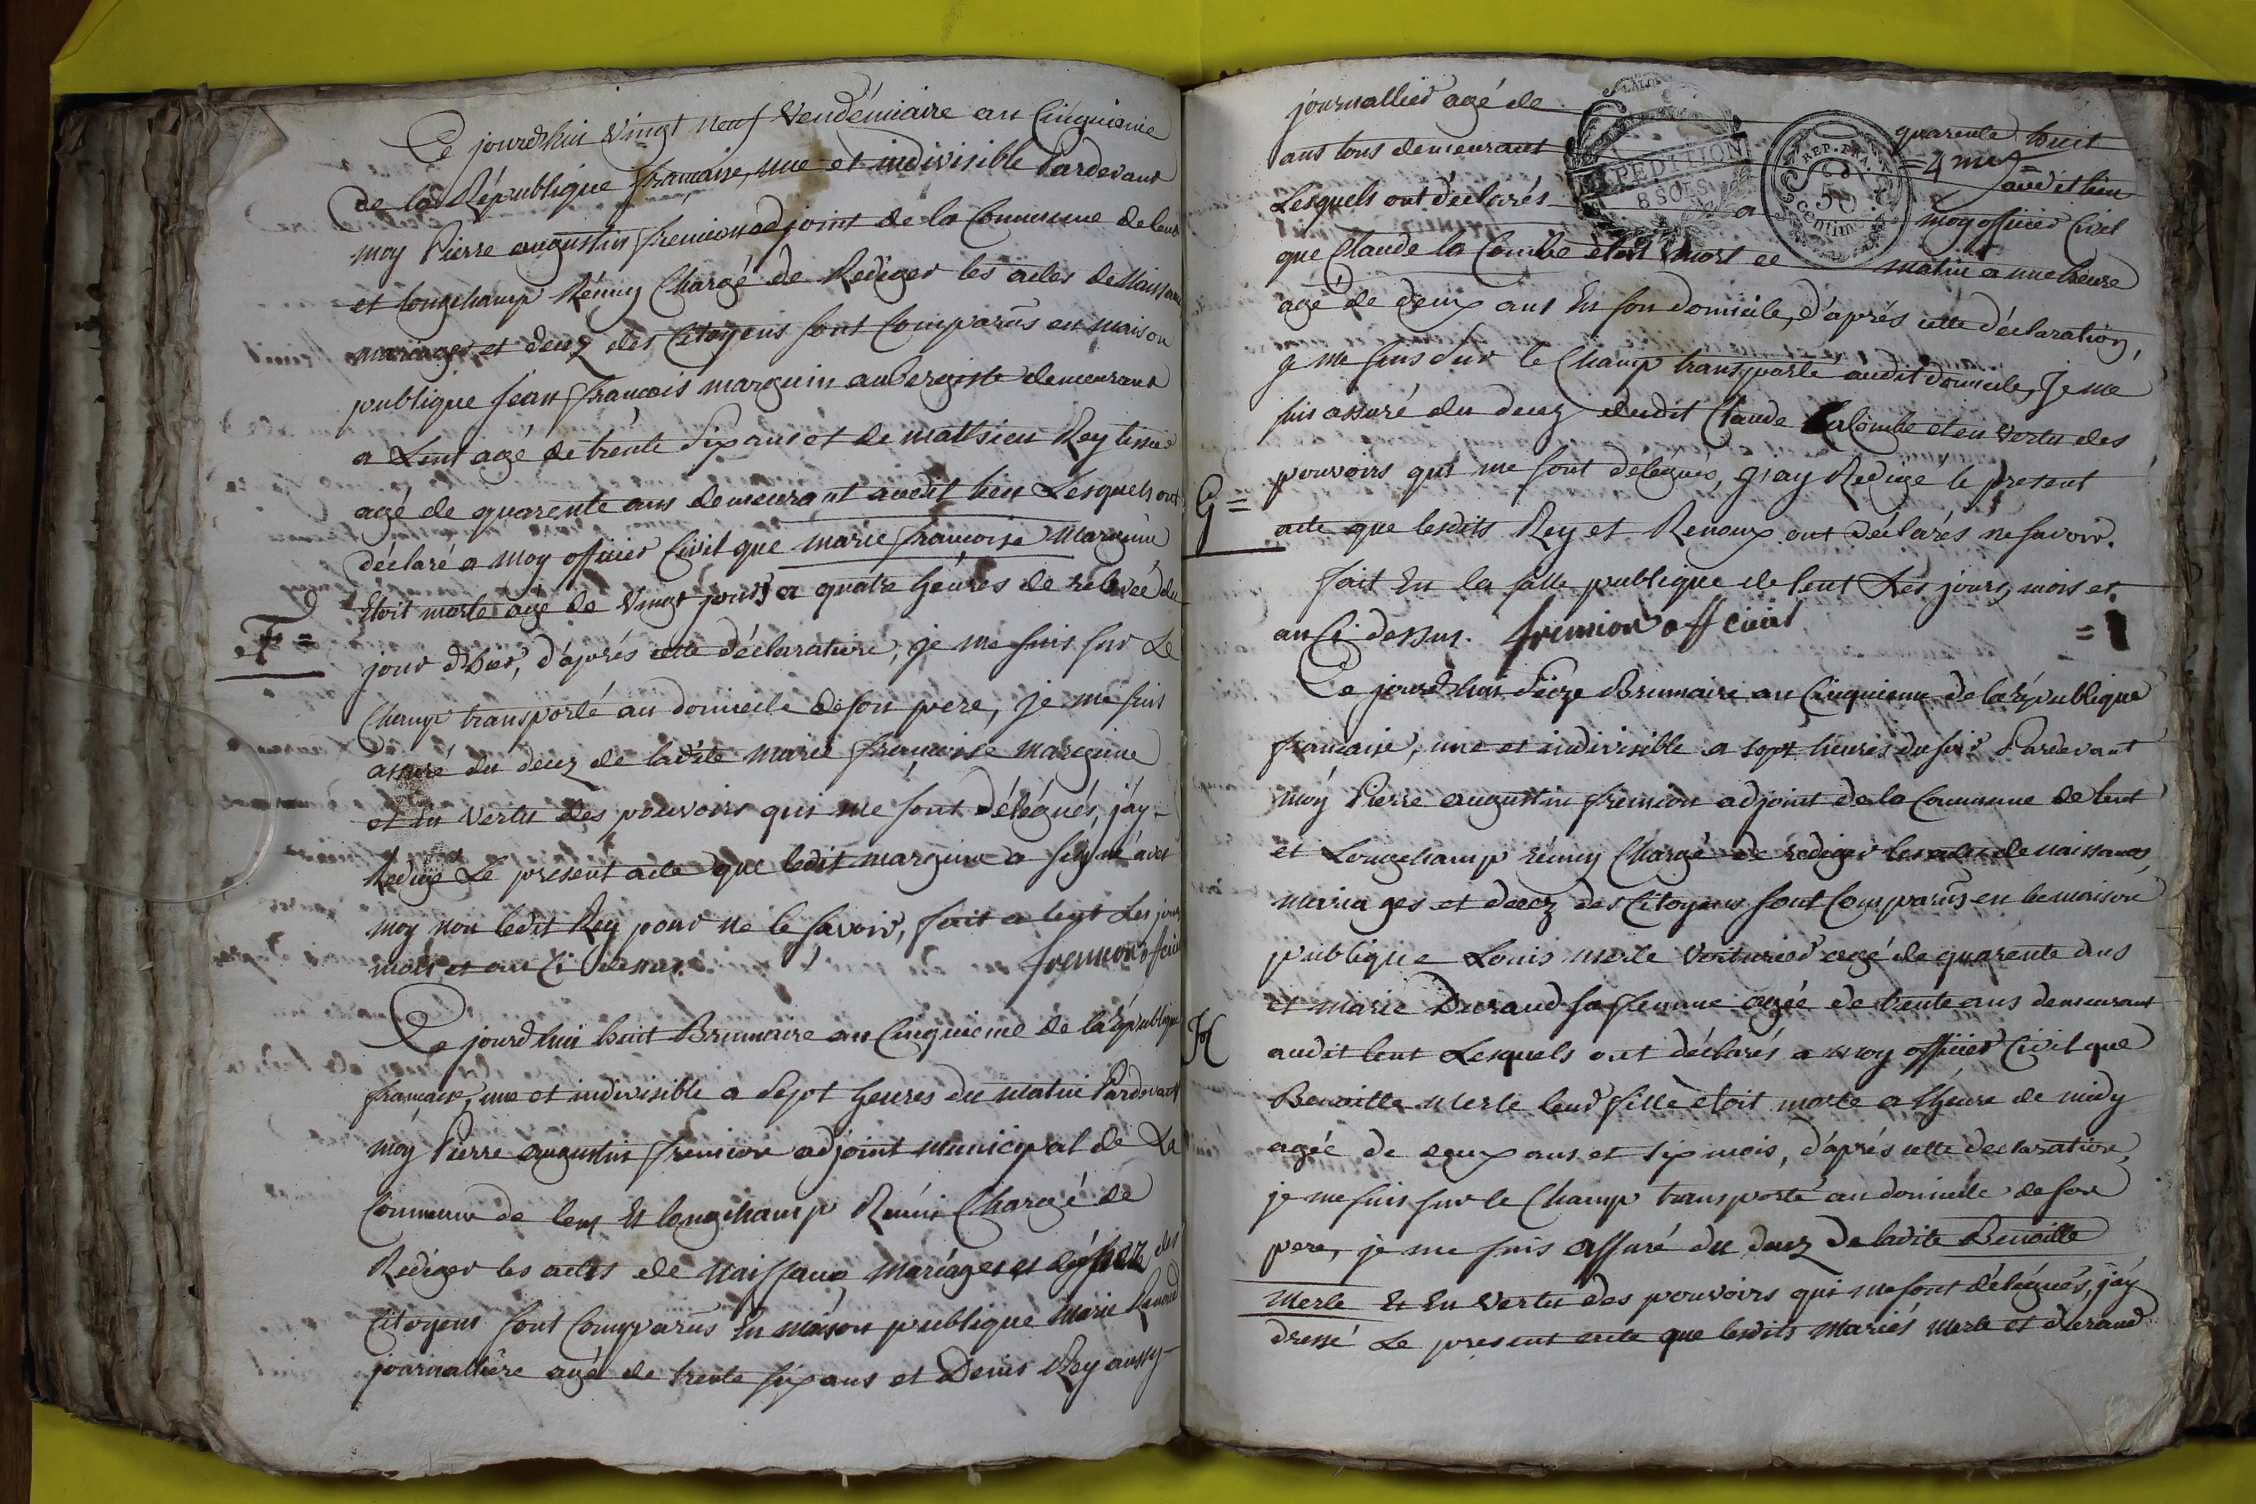 Ce jourdhui Vingt neuf Vendémiaire an Cinquieme
de la République française, une et indivisible Pardevant
moy Pierre augustin fremion adjoint de la Commune de lent
et longchamp Rémuy Chargé de Rediger les actes de Naissance
mariages et decez des Citoyens sont Comparus en maison
publique Jean François marguin aubergiste demeurant
a Lent agé de trente Six ans et de mathieu Rey
agé de quarente ans demeurant audit lieu Lesquels ont
déclaré a moy officier Civil que marie françoise Marguin
Etoit morte agé de Vingt jours a quatre heures de relevée du
F =
jour d'hier, d'aprés cette déclaration, je me suis sur Le
Champ transporté au domicile de son pere, je me suis
assuré du decez de ladite marie françoise marguine
et En Vertu des pouvoirs qui me sont délégués, j'ay
Redigé Le présent acte que ledit marguin a signé avec
moy non ledit Rey pour ne le savoir, fait a lent Les jour
mois et an Ci dessus. fremion off civil
Ce jourdhui huit Brumaire an Cinquieme de la République
francaise, une et indivisible a Sept heures du matin Pardevant
moy Pierre augustin fremion adjoint municipal de La
Commune de lent Et longchamp Chargé de
Rediger les actes de Naissance, mariages et des
Citoyens sont Comparus En maison publique Marie Renoud
journalliere agé de trente six ans et Denis Rey aussy
journallier agé de quarente huit
ans tous demeurant audit lieu
EXPEDITION
8 SOLS
REP. FRA.
50
centim.
Lesquels ont déclarés a moy officier Civil
que Claude la Combe etoit mort ce matin a une heure
agé de deux ans En son domicile, d'aprés cette déclaration,
je me suis Sur le Champ transporté audit domicile, Je me
suis assuré du decez dudit Claude laCombe et en Vertu des
pouvoirs qui me sont delegués, j'ay Redigé le present
G =
acte que lesdits Rey et Renoux ont déclarés ne savoir.
fait En la salle publique de lent Les jours, mois et
an Ci dessus. fremion off civil
Ce jourdhui Seize Brumaire an Cinquieme de la République
francaise, une et indivisible a sept heures du soir Pardevant
moy Pierre augustin fremion adjoint de la Commune de lent
et Longchamp rémuy Chargé de rediger les actes de naissances,
mariages et decez des Citoyens sont Comparus en la maison
publique Louis merle Voiturier agé de quarente ans
et marie Durand sa femme agée de trente ans demeurant
H
audit lent Lesquels ont déclarés a moy officier Civil que
Benoitte Merle leur fille etoit morte a l'heure de midy
agée de deux ans et six mois, d'aprés cette declaration,
je me suis sur le Champ transporté au domicile de son
pere, je me suis assuré du decez de ladite Benoitte
Merle Et En Vertu des pouvoirs qui me sont délégués, j'ay
dressé Le present acte que lesdits mariés merle et durand